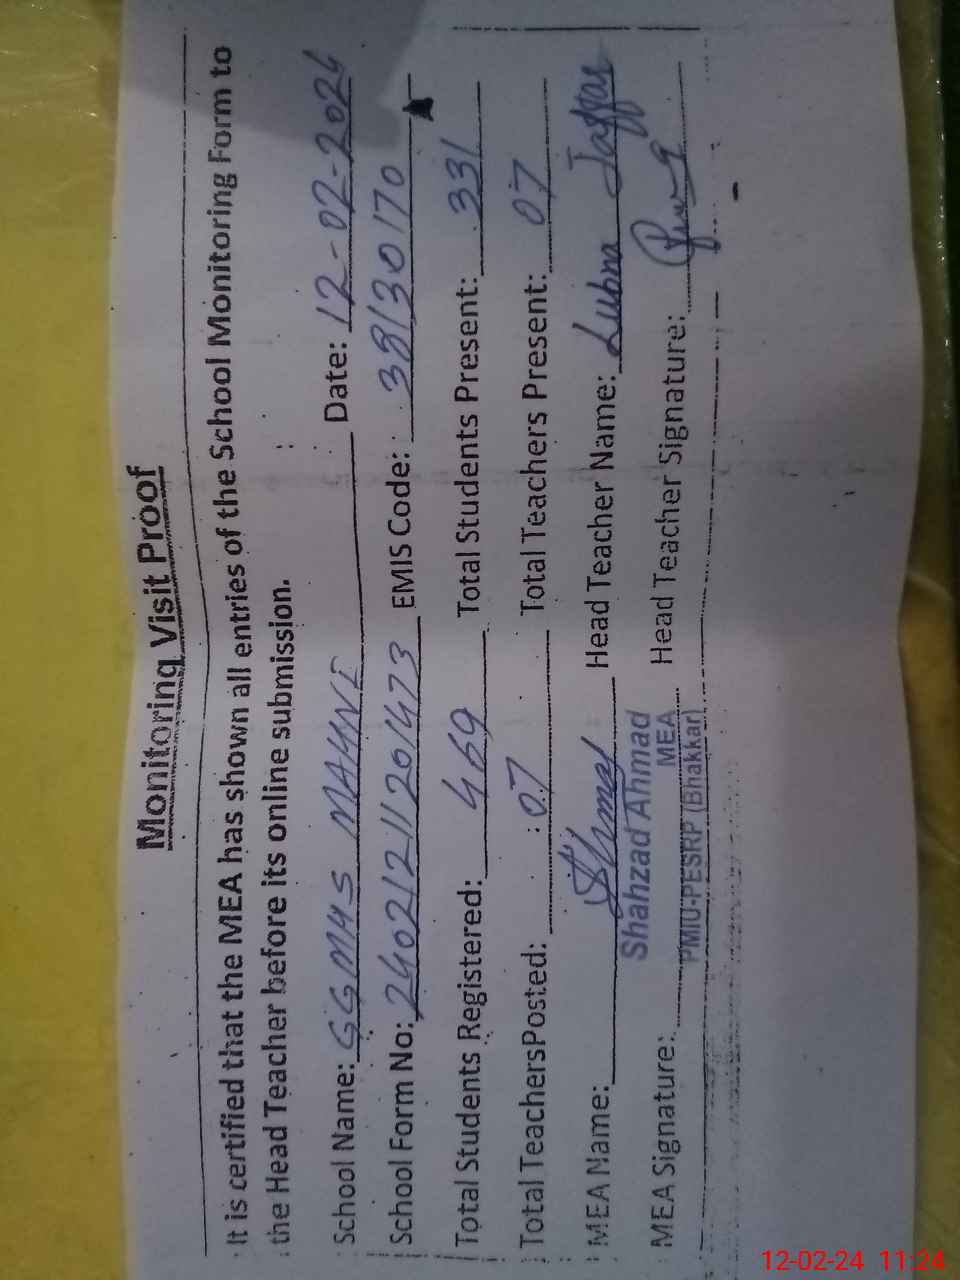 Monitoring Visit Proof
It is certified that the MEA has shown all entries of the School Monitoring Form to
the Head Teacher before its online submission.
School Name: GGMHS MAHNI Date: 12-02-2024
School Form No: 2402121120 1473 EMIS Code: 38130170
Total Students Registered: 469 Total Students Present: 331
Total TeachersPosted: 07 Total Teachers Present: 07
MEA Name: Head Teacher Name: Lubna Jaffar
Shahzad Ahmad
MEA Signature: MEA Head Teacher Signature:
PMIU-PESRP (Bhakkar)
12-02-24 11:24